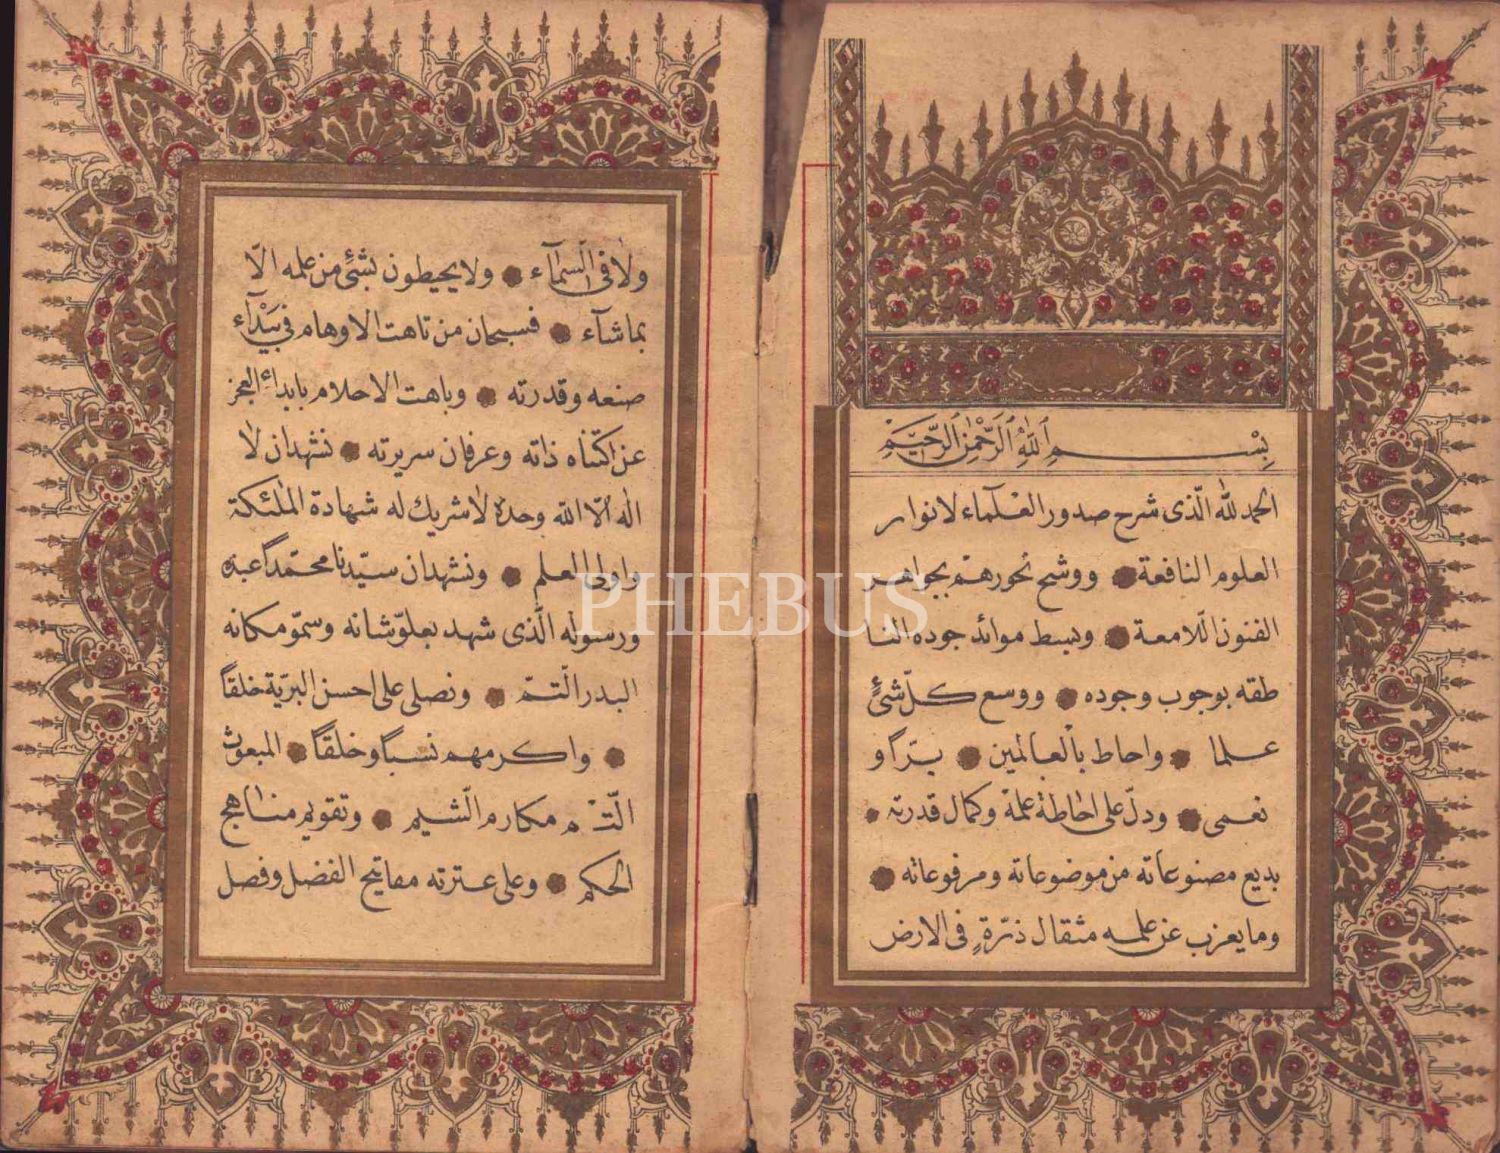 بِسْمِ اللّٰهِ الرَّحْمٰنِ الرَّحِيْمِ
الحمد للّٰه الّذى شرح صدور العلمآء لانوار
العلوم النافعة ووشح نحورهم بجواهر
الفنون اللامعة وبسط موائد جوده النا
طقه بوجوب وجوده ووسع كلّ شئٍ
علما واحاط بالعالمين برّا و
نعمى ودلّ على احاطة علمه وكمال قدرته
بديع مصنوعاته من موضوعاته ومرفوعاته
وما يعزب عن علمه مثقال ذرّةٍ فى الارض
ولا فى السّمآء ولا يحيطون بشئ من علمه الّا
بما شآء فسبحان من تاهت الاوهام فى بَيْدآء
صنعه وقدرته وباهت الاحلام بابداء العجز
عن اكتناه ذاته وعرفان سريرته نشهد ان لا
اله الّا اللّٰه وحده لا شريك له شهادة الملٰئكة
واولى العلم ونشهد ان سيّدنا محمّداً عبده
ورسوله الّذى شهد بعلوّ شانه وسموّ مكانه
البدر التّمّ ونصلى على احسن البريّة خلقاً
واكرمهم نسباً وخلقاً المبعوث
لتتميم مكارم الشّيم وتقويم مناهج
الحكم وعلى عترته مفاتيح الفضل وفصل
PHEBUS